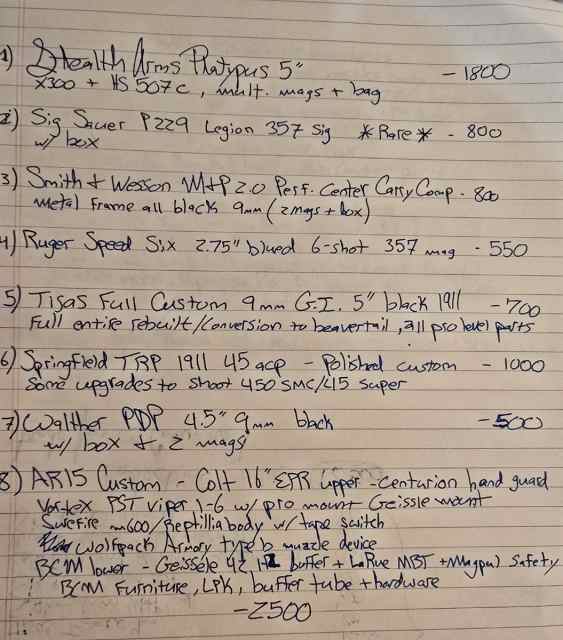 1) Stealth Arms Platypus 5" - 1800
X300 + HS 507c, mult. mags + bag
2) Sig Sauer P229 Legion 357 Sig *Rare* - 800
w/ box
3) Smith + Wesson M+P 2.0 Perf. Center Carry Comp - 800
Metal Frame all black 9mm (2 mags + box)
4) Ruger Speed Six 2.75" blued 6-shot 357 mag - 550
5) Tisas Full Custom 9mm G.I. 5" black 1911 - 700
Full entire rebuilt/conversion to beavertail, all pro level parts
6) Springfield TRP 1911 45 acp - Polished custom - 1000
Some upgrades to shoot 450 SMC/45 super
7) Walther PDP 4.5" 9mm black - 500
w/ box + 2 mags
8) AR15 Custom - Colt 16" EPR upper - Centurion hand guard
Vortex PST viper 1-6 w/ pro mount Geissle mount
Surefire m600/Reptillia body w/ tape switch
Wolfpack Armory type b muzzle device
BCM lower - Geissele 42 H2 buffer + LaRue MBT + Magpul Safety
BCM Furniture, LPK, buffer tube + hardware
- 2500